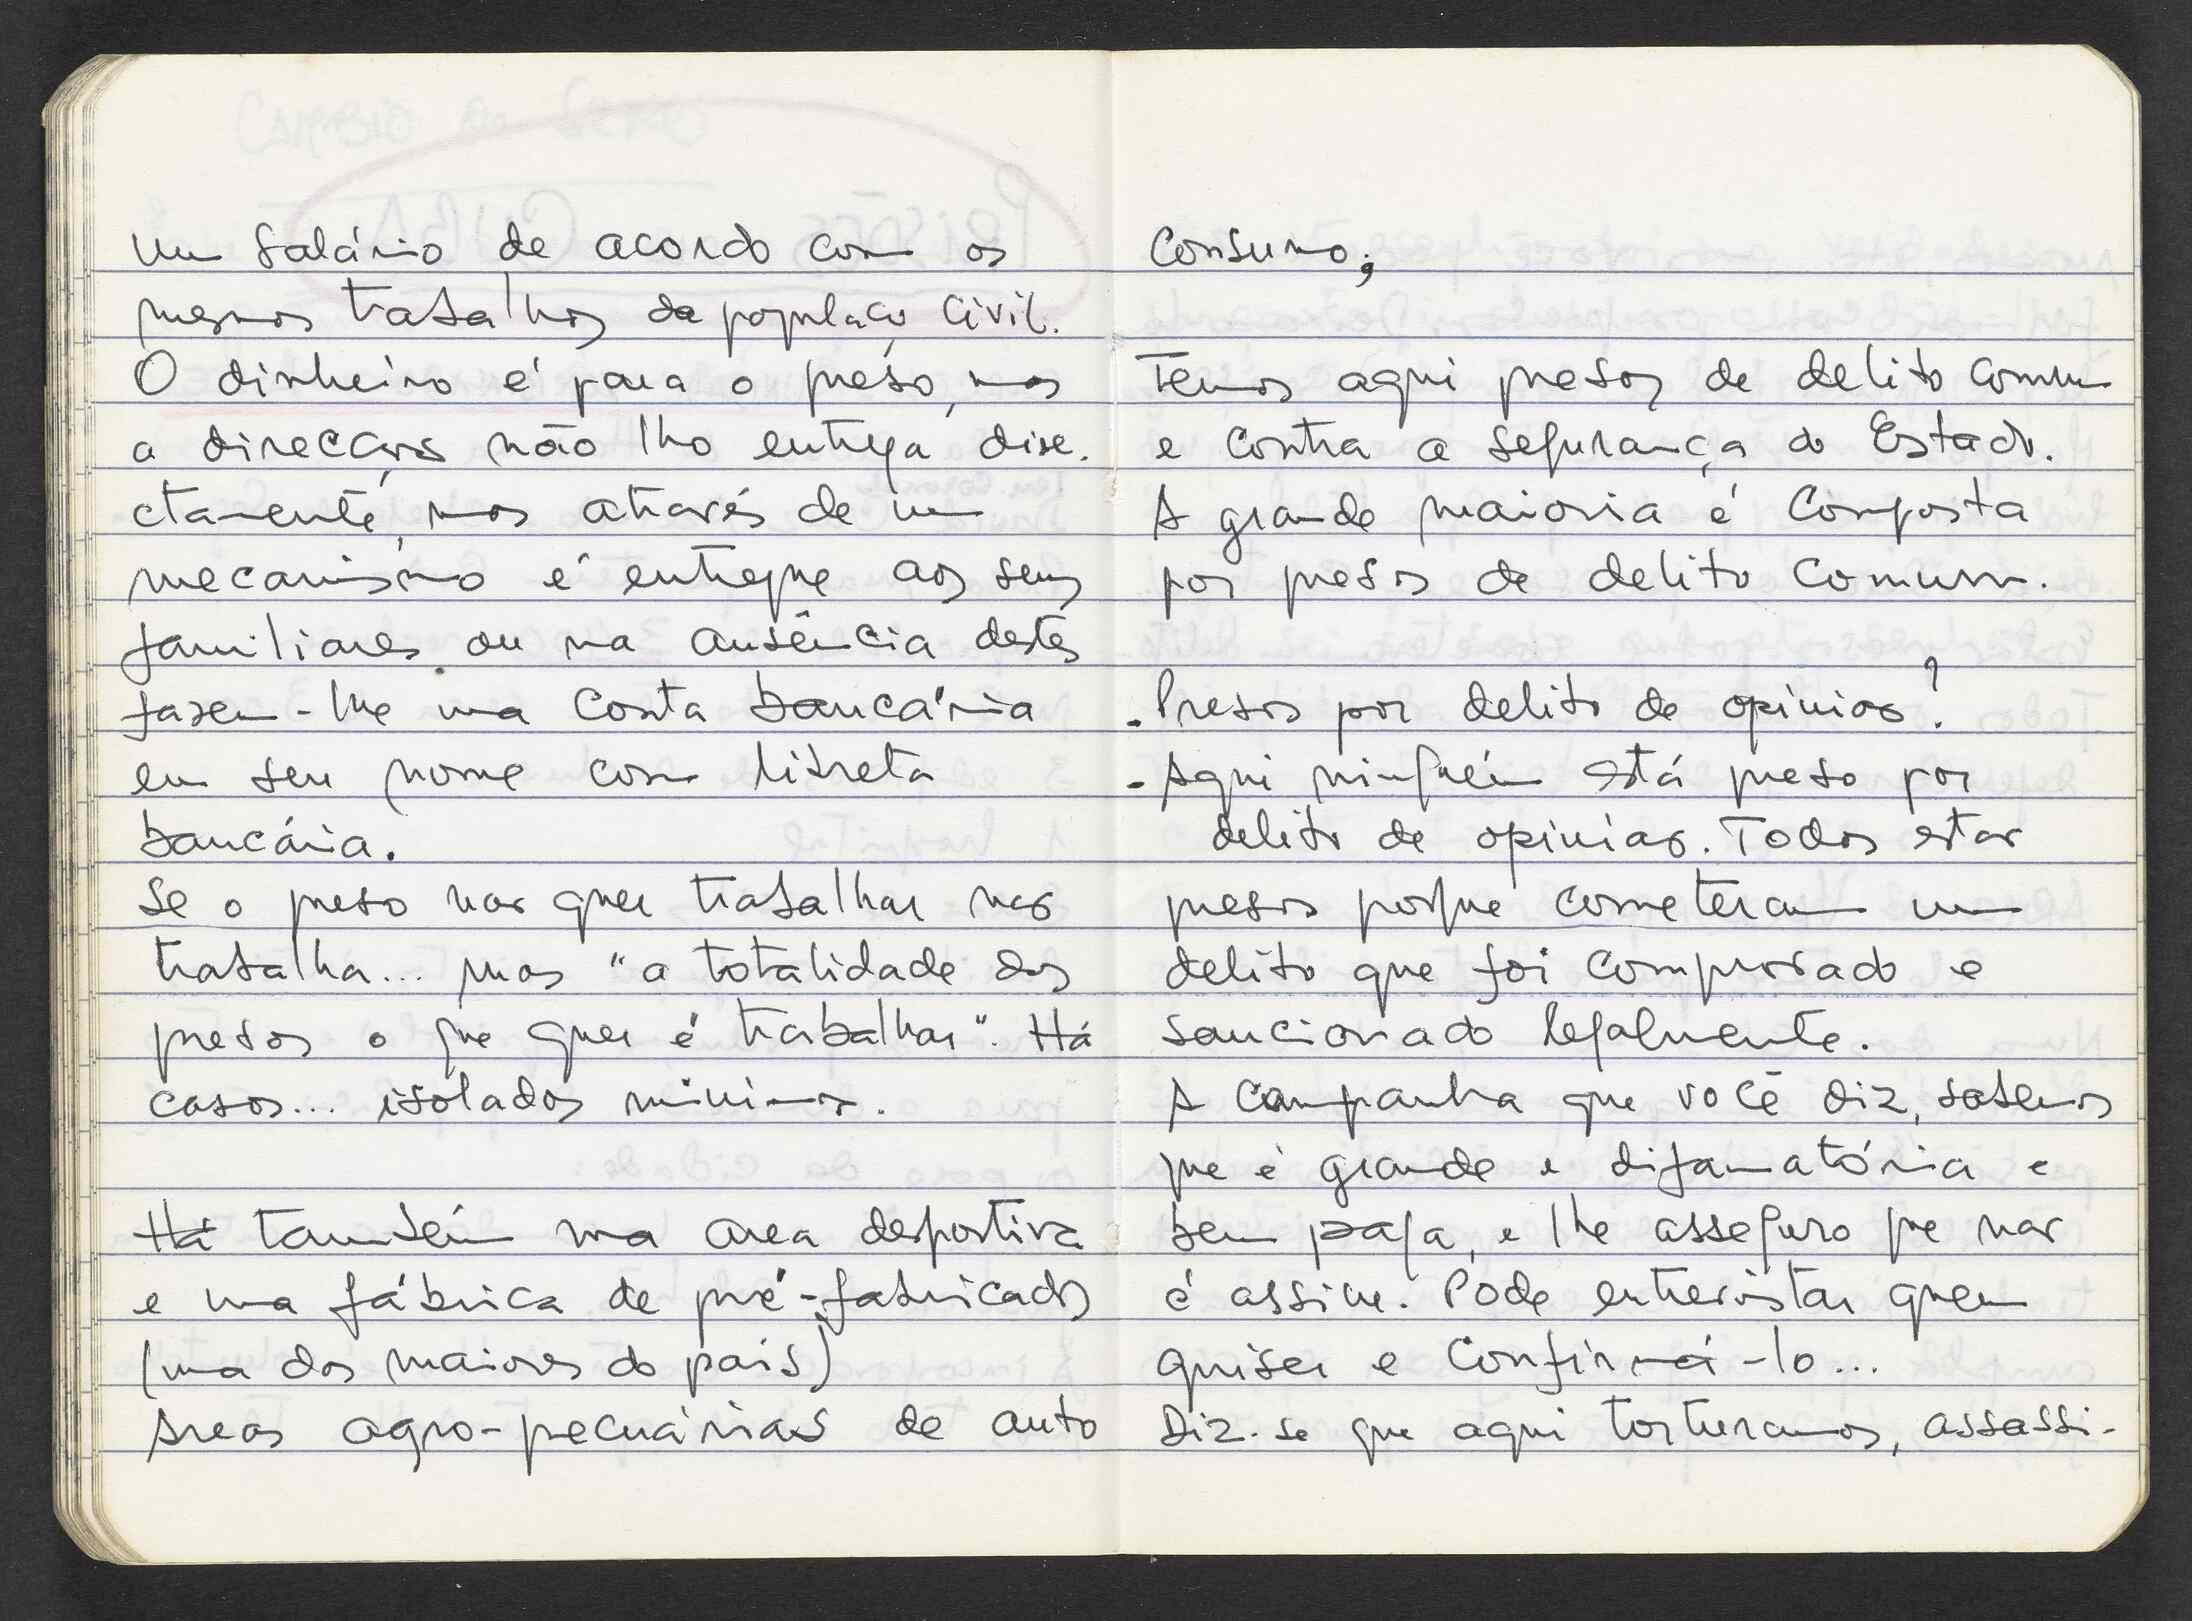 um salário de acordo com os
mesmos trabalhos da população civil.
O dinheiro é para o preso, mas
a direcção não lho entrega dire-
ctamente, mas através de um
mecanismo é entregue aos seus
familiares ou na ausência destes
fazem-lhe uma conta bancária
em seu nome com libreta
bancária.
Se o preso não quer trabalhar não
trabalha... mas "a totalidade dos
presos o que quer é trabalhar". Há
casos... isolados mínimos.
Há também uma area desportiva
e uma fábrica de pré-fabricados
(uma dos maiores do país)
Areas agro-pecuárias de auto
consumo;
Temos aqui presos de delito comum
e contra a segurança do Estado.
A grande maioria é composta
por presos de delito comum.
- Presos por delito de opinião?
- Aqui ninguém está preso por
delito de opinião. Todos estão
presos porque cometeram um
delito que foi comprovado e
sancionado legalmente.
A campanha que você diz, sabemos
que é grande e difamatória e
bem paga, e lhe asseguro que não
é assim. Pode entrevistar quem
quiser e confirmá-lo...
Diz-se que aqui torturamos, assassi-